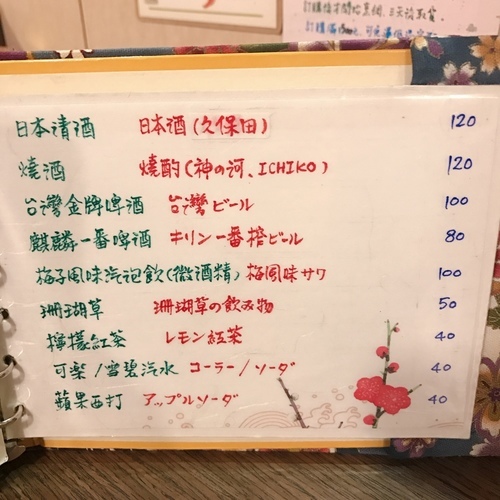 訂購後才開始
日本清酒 日本酒(久保田) 120
燒酒 燒酌(神の河、ICHIKO) 120
台灣金牌啤酒 台灣ビール 100
麒麟一番啤酒 キリン一番搾ビール 80
梅子風味汽泡飲(微酒精) 梅風味サワ 100
珊瑚草 珊瑚草の飲み物 50
檸檬紅茶 レモン紅茶 40
可樂/雪碧汽水 コーラー/ソーダ 40
蘋果西打 アップルソーダ 40